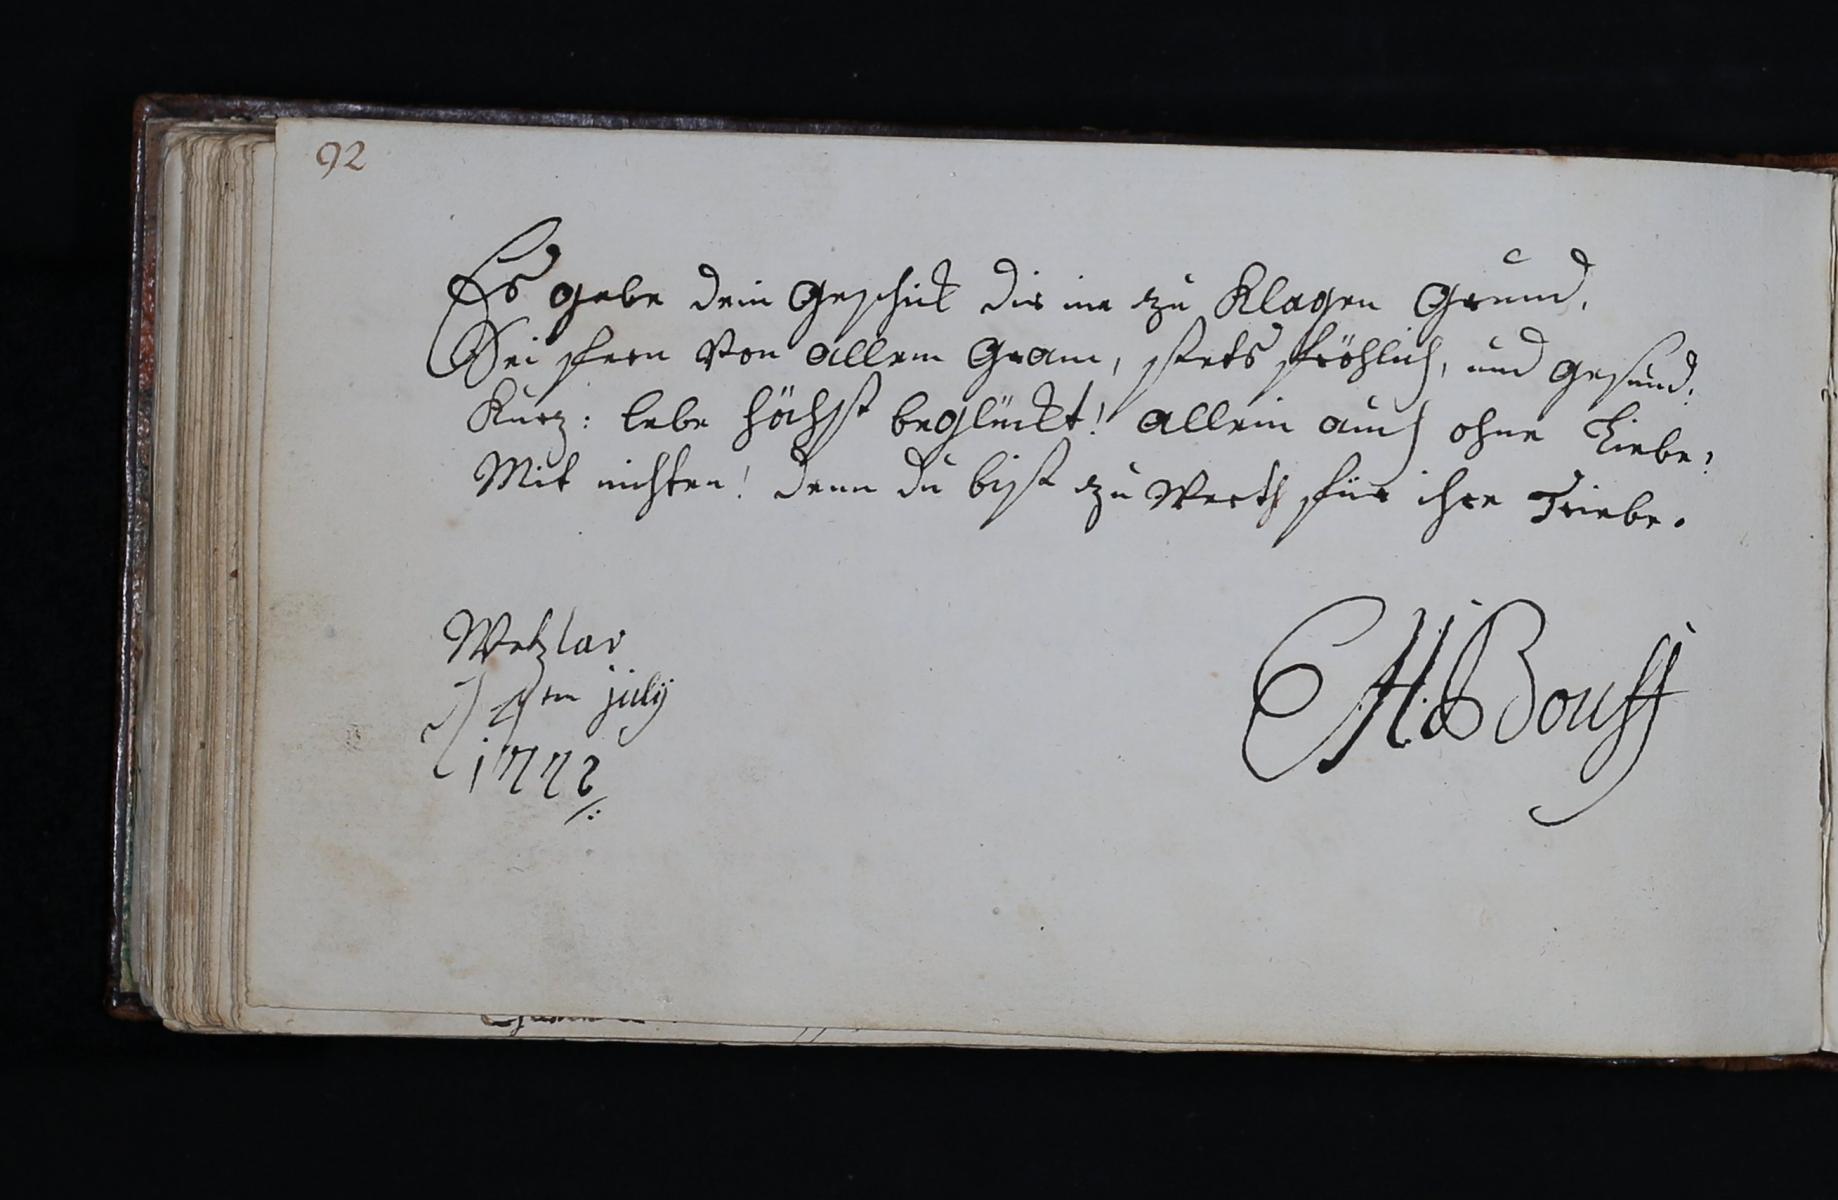 92
Es gebe dein Geschick dir nie zu Klagen Grund.
Sei fern von allem Gram, stets fröhlich, und gesund.
Kurz: lebe höchst beglückt! allein auch ohne Liebe?
Mit nichten! denn du bist zu Werth für ihre Triebe.
Wetzlar
d 4ten julÿ
1772
Buff